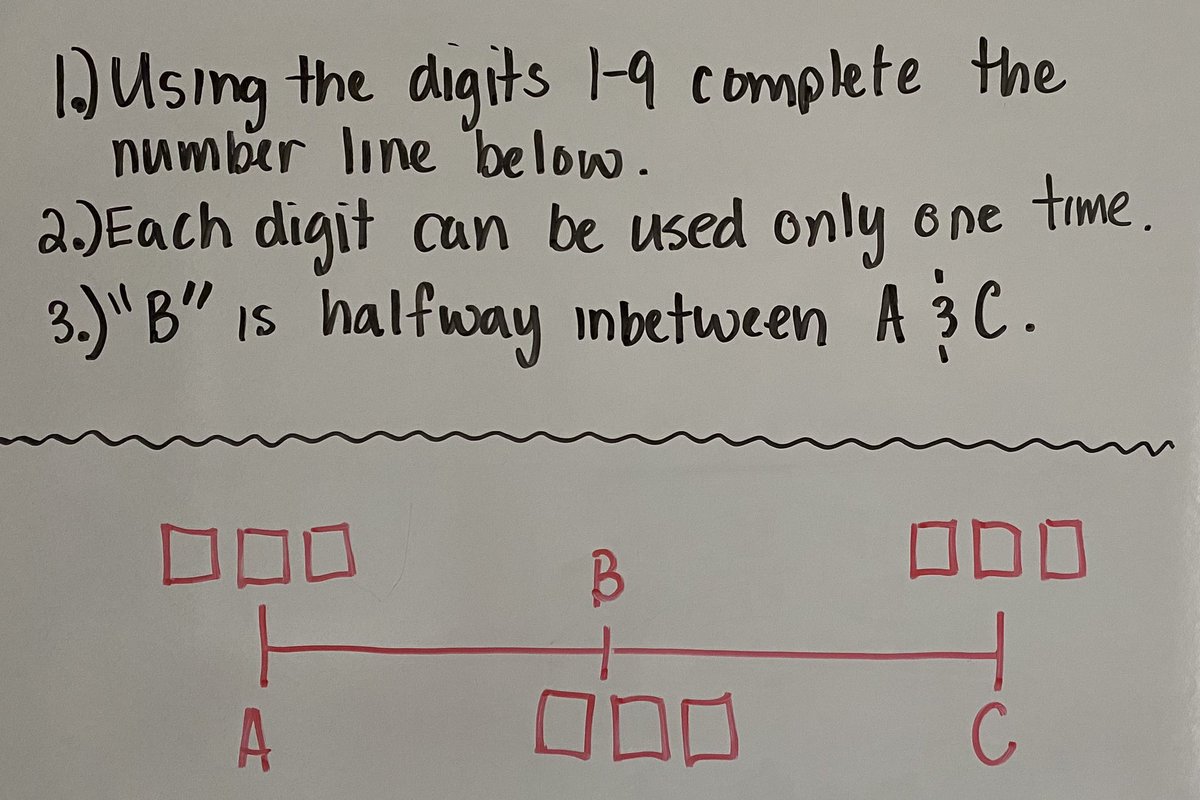 1.) Using the digits 1-9 complete the
number line below.
2.) Each digit can be used only one time.
3.) "B" is halfway inbetween A & C.
B
A
C